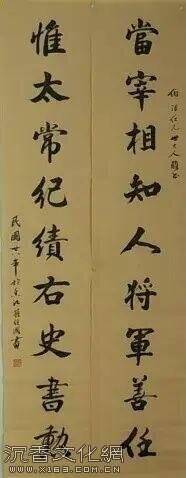 當宰相知人将軍善任
惟太常紀績右史書勳
民國廿八年
沉香文化網
www.x163.com.cn